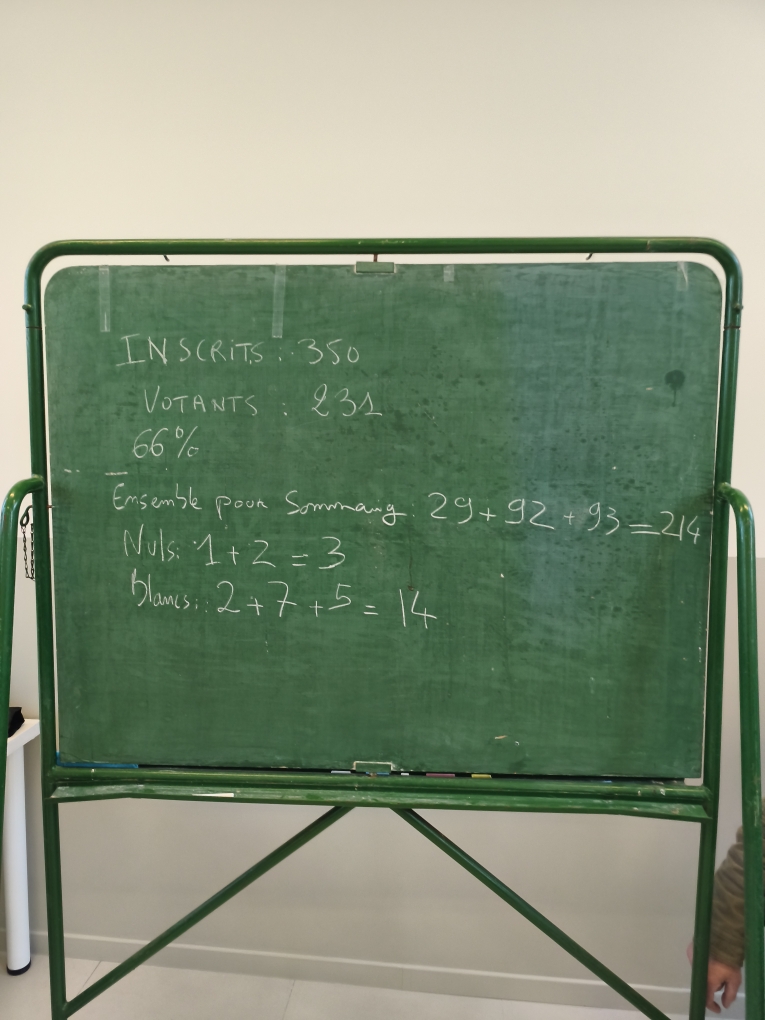 INSCRITS : 350
VOTANTS : 231
66%
Ensemble pour Sommaing : 29 + 92 + 93 = 214
Nuls : 1 + 2 = 3
Blancs : 2 + 7 + 5 = 14